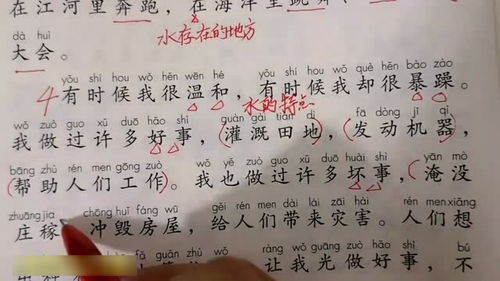 在江河里奔跑，在海洋里跳舞
水存在的地方
dà huì
大会。
yǒu shí hou wǒ hěn wēn hé yǒu shí hou wǒ què hěn bào zào
4 有时候我很温和，有时候我却很暴躁。
水的特点
wǒ zuò guo xǔ duō hǎo shì guàn gài tián dì fā dòng jī qì
我做过许多好事，(灌溉田地，(发动机器，
bāng zhù rén men gōng zuò wǒ yě zuò guo xǔ duō huài shì yān mò
(帮助人们工作)。我也做过许多坏事，淹没
zhuāng jia chōng huǐ fáng wū gěi rén men dài lái zāi hài rén men xiǎng
庄稼，冲毁房屋，给人们带来灾害。人们想
guǎn zhù ràng wǒ guāng zuò hǎo shì bù
让我光做好事，不